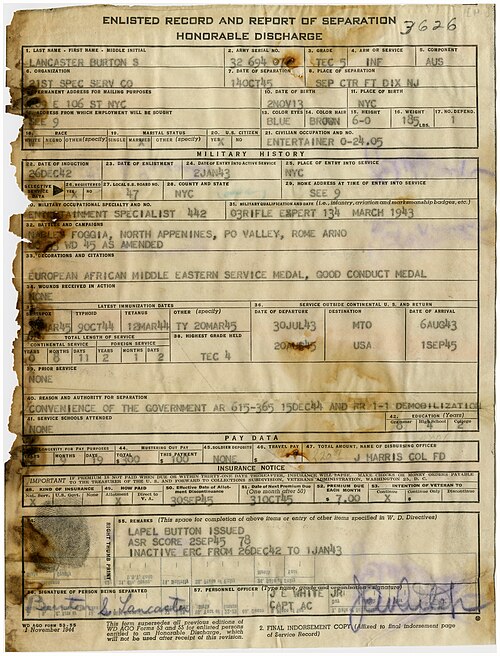 ENLISTED RECORD AND REPORT OF SEPARATION
HONORABLE DISCHARGE
3626
1. LAST NAME - FIRST NAME - MIDDLE INITIAL 2. ARMY SERIAL NO. 3. GRADE 4. ARM OR SERVICE 5. COMPONENT
LANCASTER BURTON S 32 694 TEC 5 INF AUS
6. ORGANIZATION 7. DATE OF SEPARATION 8. PLACE OF SEPARATION
21ST SPEC SERV CO 14OCT45 SEP CTR FT DIX NJ
PERMANENT ADDRESS FOR MAILING PURPOSES 10. DATE OF BIRTH 11. PLACE OF BIRTH
E 106 ST NYC 2NOV13 NYC
ADDRESS FROM WHICH EMPLOYMENT WILL BE SOUGHT 13. COLOR EYES 14. COLOR HAIR 15. HEIGHT 16. WEIGHT 17. NO. DEPEND.
SEE 9 BLUE BROWN 6-0 185 LBS. 1
RACE 19. MARITAL STATUS 20. U.S. CITIZEN 21. CIVILIAN OCCUPATION AND NO.
WHITE NEGRO OTHER (specify) SINGLE MARRIED OTHER (specify) YES NO
X ENTERTAINER 0-24.05
MILITARY HISTORY
22. DATE OF INDUCTION 23. DATE OF ENLISTMENT 24. DATE OF ENTRY INTO ACTIVE SERVICE 25. PLACE OF ENTRY INTO SERVICE
26DEC42 2JAN43 NYC
SELECTIVE SERVICE DATA 26. REGISTERED 27. LOCAL S.S. BOARD NO. 28. COUNTY AND STATE 29. HOME ADDRESS AT TIME OF ENTRY INTO SERVICE
X 47 NYC SEE 9
MILITARY OCCUPATIONAL SPECIALTY AND NO. 31. MILITARY QUALIFICATION AND DATE (i.e., infantry, aviation and marksmanship badges, etc.)
ENTERTAINMENT SPECIALIST 442 03RIFLE EXPERT 134 MARCH 1943
32. BATTLES AND CAMPAIGNS
NAPLES FOGGIA, NORTH APPENINES, PO VALLEY, ROME ARNO
WD 45 AS AMENDED
33. DECORATIONS AND CITATIONS
EUROPEAN AFRICAN MIDDLE EASTERN SERVICE MEDAL, GOOD CONDUCT MEDAL
34. WOUNDS RECEIVED IN ACTION
NONE
LATEST IMMUNIZATION DATES 36. SERVICE OUTSIDE CONTINENTAL U.S. AND RETURN
TYPHOID TETANUS OTHER (specify) DATE OF DEPARTURE DESTINATION DATE OF ARRIVAL
MAR45 9OCT44 12MAR44 TY 20MAR45 30JUL43 MTO 6AUG43
TOTAL LENGTH OF SERVICE 38. HIGHEST GRADE HELD
CONTINENTAL SERVICE FOREIGN SERVICE 20AUG45 USA 1SEP45
YEARS MONTHS DAYS YEARS MONTHS DAYS
0 8 11 2 1 2 TEC 4
39. PRIOR SERVICE
NONE
40. REASON AND AUTHORITY FOR SEPARATION
CONVENIENCE OF THE GOVERNMENT AR 615-365 15DEC44 AND RR 1-1 DEMOBILIZATION
41. SERVICE SCHOOLS ATTENDED 42. EDUCATION (Years)
Grammar High School College
NONE 8 4 2
PAY DATA
LONGEVITY FOR PAY PURPOSES 44. MUSTERING OUT PAY 45. SOLDIER DEPOSITS 46. TRAVEL PAY 47. TOTAL AMOUNT, NAME OF DISBURSING OFFICER
J HARRIS COL FD
INSURANCE NOTICE
IMPORTANT IF PREMIUM IS NOT PAID WHEN DUE OR WITHIN THIRTY-ONE DAYS THEREAFTER, INSURANCE WILL LAPSE. MAKE CHECKS OR MONEY ORDERS PAYABLE
TO THE TREASURER OF THE U. S. AND FORWARD TO COLLECTIONS SUBDIVISION, VETERANS ADMINISTRATION, WASHINGTON 25, D. C.
48. KIND OF INSURANCE 49. HOW PAID 50. Effective Date of Allotment Discontinuance 51. Date of Next Premium Due (One month after 50) 52. PREMIUM DUE EACH MONTH 53. INTENTION OF VETERAN TO
Nat. Serv. U.S. Govt. None Allotment Direct to V. A. Continue Continue Only Discontinue
X X 30SEP45 31OCT45 $ 7.00 X
55. REMARKS (This space for completion of above items or entry of other items specified in W. D. Directives)
RIGHT THUMB PRINT
LAPEL BUTTON ISSUED
ASR SCORE 2SEP45 78
INACTIVE ERC FROM 26DEC42 TO 1JAN43
SIGNATURE OF PERSON BEING SEPARATED 57. PERSONNEL OFFICER (Type name, grade and organization - signature)
Burton S. Lancaster J E WHITE JR
CAPT AC
WD AGO FORM 53-55
1 November 1944
This form supersedes all previous editions of
WD AGO Forms 53 and 55 for enlisted persons
entitled to an Honorable Discharge, which
will not be used after receipt of this revision.
2. FINAL INDORSEMENT COPY (Affixed to final indorsement page
of Service Record)